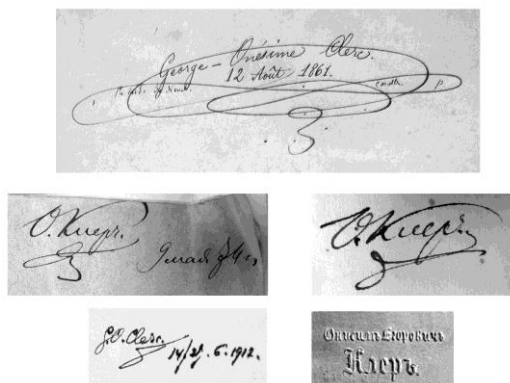 George-Onésime Clerc.
12 Août 1861.
О. Клеръ.
О. Клеръ.
G.O. Clerc.
14/27. 6. 1912.
Онисимъ Егоровичъ
Клеръ.